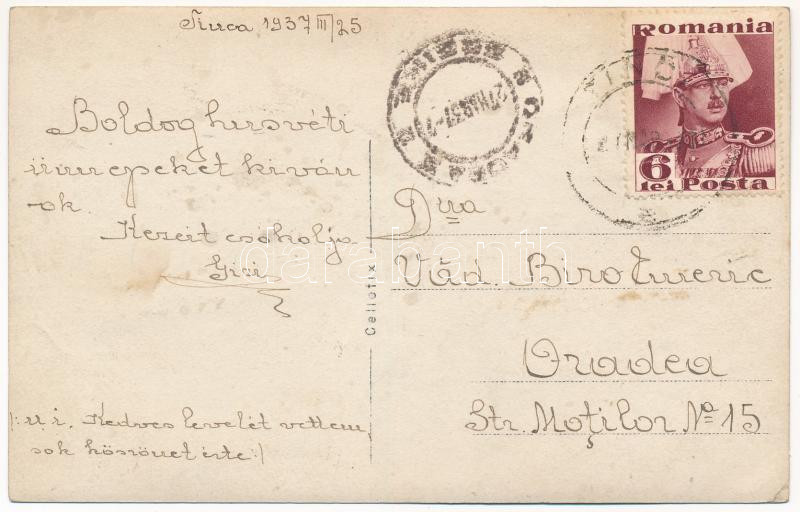 Tinca 1937 III/25
Boldog husvéti
ünnepeket kíván
-ok.
Kezeit csokolja
Gizi
/: u. i. Kedves levelét vettem,
sok köszönet érte :/
Cellofix
Romania
6
lei Posta
27 MAR 37
ORADEA
TINCA
Dna
Văd. Biro Imeric
Oradea
Str. Moţilor No 15
darabanth